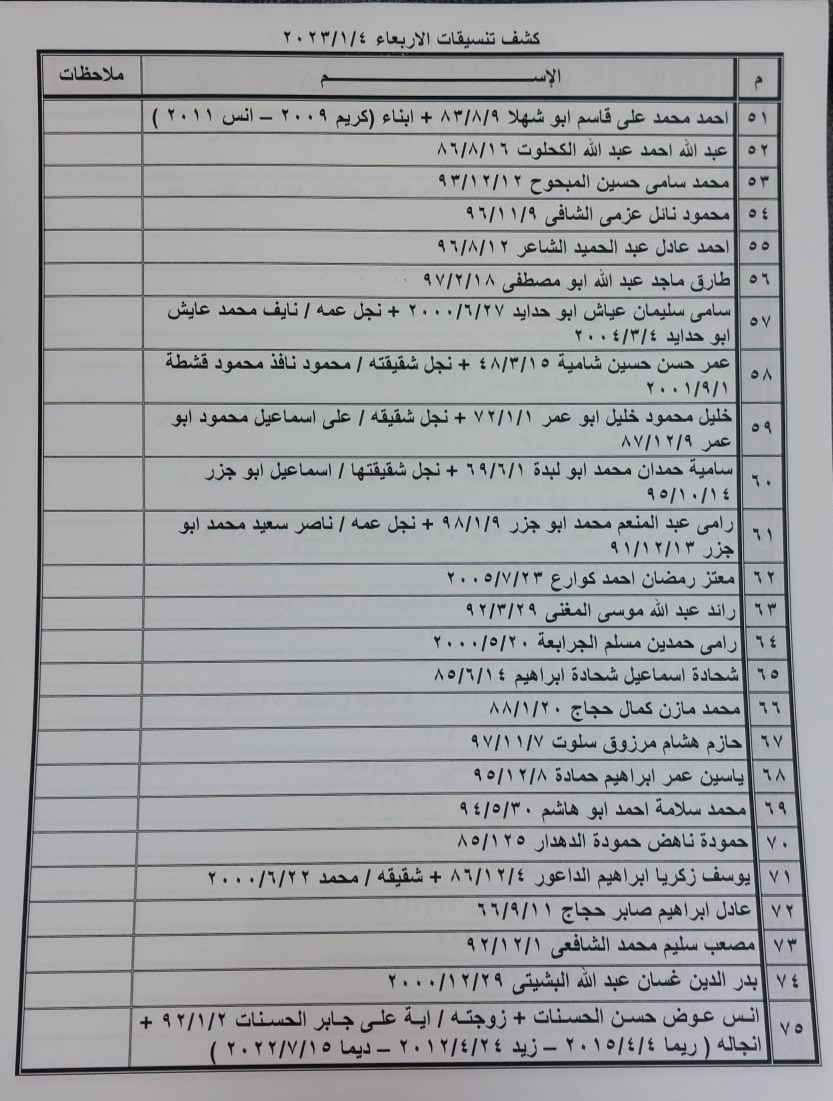 كشف تنسيقات الاربعاء ٢٠٢٣/١/٤
م الإســـم ملاحظات
٥١ احمد محمد على قاسم ابو شهلا ٨٣/٨/٩ + ابناء (كريم ٢٠٠٩ – انس ٢٠١١ )
٥٢ عبد الله احمد عبد الله الكحلوت ٨٦/٨/١٦
٥٣ محمد سامى حسين المبحوح ٩٣/١٢/١٢
٥٤ محمود نائل عزمى الشافى ٩٦/١١/٩
٥٥ احمد عادل عبد الحميد الشاعر ٩٦/٨/١٢
٥٦ طارق ماجد عبد الله ابو مصطفى ٩٧/٢/١٨
٥٧ سامى سليمان عياش ابو حدايد ٢٠٠٠/٦/٢٧ + نجل عمه / نايف محمد عايش
ابو حدايد ٢٠٠٤/٣/٤
٥٨ عمر حسن حسين شامية ٤٨/٣/١٥ + نجل شقيقته / محمود نافذ محمود قشطة
٢٠٠١/٩/١
٥٩ خليل محمود خليل ابو عمر ٧٢/١/١ + نجل شقيقه / على اسماعيل محمود ابو
عمر ٨٧/١٢/٩
٦٠ سامية حمدان محمد ابو لبدة ٦٩/٦/١ + نجل شقيقتها / اسماعيل ابو جزر
٩٥/١٠/١٤
٦١ رامى عبد المنعم محمد ابو جزر ٩٨/١/٩ + نجل عمه / ناصر سعيد محمد ابو
جزر ٩١/١٢/١٣
٦٢ معتز رمضان احمد كوارع ٢٠٠٥/٧/٢٣
٦٣ رائد عبد الله موسى المغنى ٩٢/٣/٢٩
٦٤ رامى حمدين مسلم الجرابعة ٢٠٠٠/٥/٢٠
٦٥ شحادة اسماعيل شحادة ابراهيم ٨٥/٦/١٤
٦٦ محمد مازن كمال حجاج ٨٨/١/٢٠
٦٧ حازم هشام مرزوق سلوت ٩٧/١١/٧
٦٨ ياسين عمر ابراهيم حمادة ٩٥/١٢/٨
٦٩ محمد سلامة احمد ابو هاشم ٩٤/٥/٣٠
٧٠ حمودة ناهض حمودة الدهدار ٨٥/١٢٥
٧١ يوسف زكريا ابراهيم الداعور ٨٦/١٢/٤ + شقيقه / محمد ٢٠٠٠/٦/٢٢
٧٢ عادل ابراهيم صابر حجاج ٦٦/٩/١١
٧٣ مصعب سليم محمد الشافعى ٩٢/١٢/١
٧٤ بدر الدين غسان عبد الله البشيتى ٢٠٠٠/١٢/٢٩
٧٥ انس عوض حسن الحسنات + زوجته / اية على جابر الحسنات ٩٢/١/٢ +
انجاله ( ريما ٢٠١٥/٤/٤ – زيد ٢٠١٢/٤/٢٤ – ديما ٢٠٢٢/٧/١٥ )